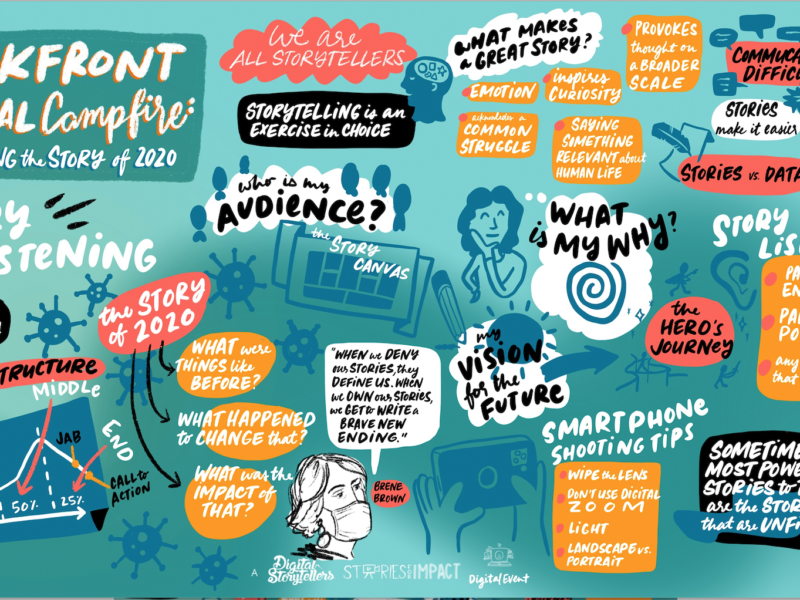 KFRONT
AL Campfire:
NG the STORY of 2020
We are
ALL STORYTELLERS
STORYTELLING is an
EXERCISE in CHOICE
WHAT MAKES
a GREAT STORY?
EMOTION
inspires
CURIOSITY
PROVOKES
thought on
a BROADER
SCALE
acknowledges a
COMMON
STRUGGLE
SAYING
SOMETHING
RELEVANT about
HUMAN LIFE
COMMUC
DIFFIC
STORIES
make it easier
STORIES vs. DATA
who is my
AUDIENCE?
the STORY
CANVAS
WHAT
is MY WHY?
STORY
LIS
PA
EN
PA
PO
any
that
the
HERO'S
JOURNEY
RY
STENING
the STORY
of 2020
WHAT were
THINGS like
BEFORE?
WHAT HAPPENED
to CHANGE that?
WHAT was the
IMPACT of
THAT?
TRUCTURE
MIDDLE
END
JAB
CALL to
ACTION
50%
25%
"WHEN we DENY
our STORIES, they
DEFINE US. WHEN
we OWN our STORIES,
we GET to WRITE a
BRAVE NEW
ENDING."
BRENE
BROWN
my
VISION
for the
FUTURE
SMARTPHONE
SHOOTING TIPS
WIPE the LENS
DON'T USE DIGITAL
ZOOM
LIGHT
LANDSCAPE vs.
PORTRAIT
SOMETIME
MOST POWE
STORIES to T
are the STOR
that are UNFI
A
Digital
Storytellers
STORIES FOR IMPACT
Digital Event